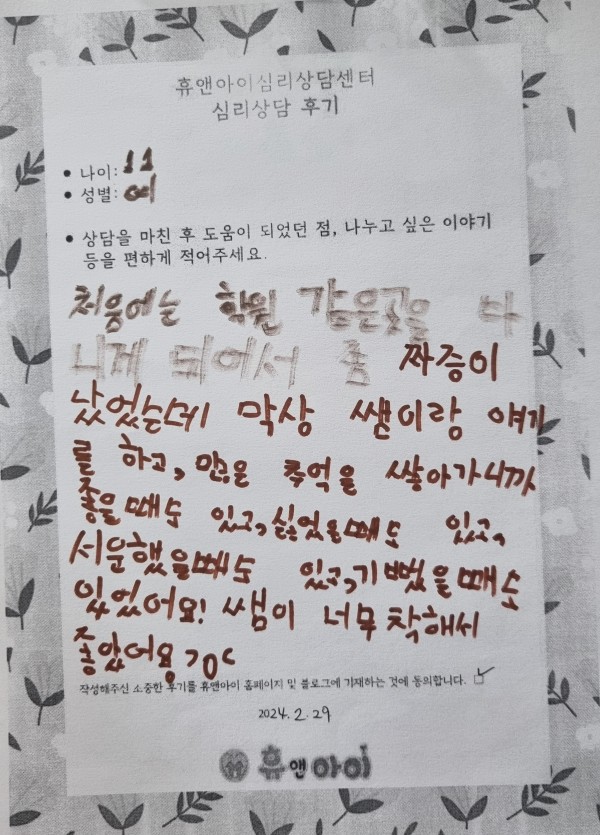 휴앤아이심리상담센터
심리상담 후기
• 나이: 11
• 성별: 여
• 상담을 마친 후 도움이 되었던 점, 나누고 싶은 이야기
등을 편하게 적어주세요.
처음에는 학원 같은곳을 다
니게 되어서 좀 짜증이
났었는데 막상 쌤이랑 얘기
를 하고, 많은 추억을 쌓아가니까
좋을때도 있고, 싫었을때도 있고,
서운했을때도 있고, 기뻤을때도
있었어요! 쌤이 너무 착해서
좋았어용
작성해주신 소중한 후기를 휴앤아이 홈페이지 및 블로그에 기재하는 것에 동의합니다. ☑
2024. 2. 29
휴앤아이